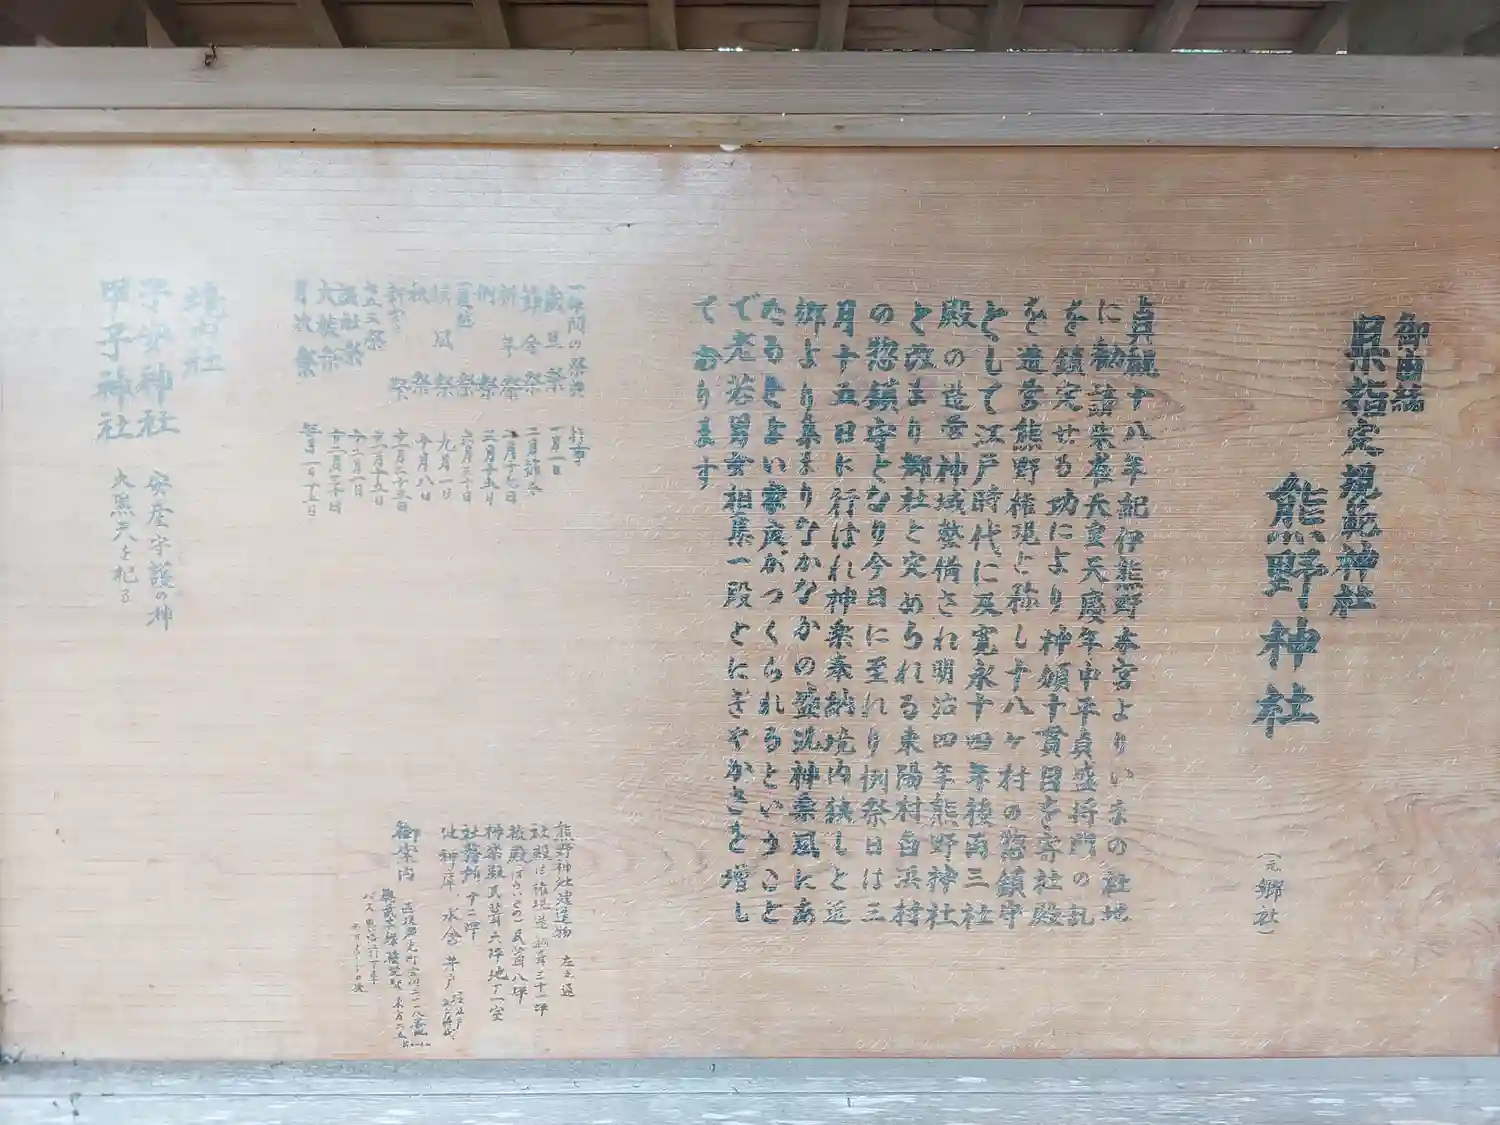 御由緒
県指定規範神社
熊野神社
(元郷社)
貞観十八年紀伊熊野本宮よりいまの社地
に勧請朱雀天皇天慶年中平貞盛将門の乱
を鎮定せる功により神領十貫目を寄社殿
を造営熊野権現と称し十八ヶ村の惣鎮守
として江戸時代に及寛永十四年後両三社
殿の造営神域整備され明治四年熊野神社
と改まり郷社と定められれる東陽村白浜村
の惣鎮守となり今日に至れり例祭日は三
月十五日に行はれ神楽奉納境内狭しと近
郷より集まりなかなかの盛況神楽風にあ
たるとよい家庭がつくられるということ
で老若男女相集一段とにぎやかさを増し
て おります
一年間の祭典 行事
歳旦祭 一月一日
節会祭 二月節分
祈年祭 二月十七日
例祭 三月十五日
六月三十日
風祭 九月一日
秋祭 十月八日
新穀祭 十一月二十三日
七五三祭 十一月十五日
十二月一日
大祓祭 十二月三十日
月次祭 毎月一日十五日
熊野神社建造物 左之通
社殿は権現造 三十一坪
拝殿 瓦葺八坪
神楽殿瓦葺六坪地下一室
社務所 十二坪
神庫 水舎 井戸
御案内
境内社
子安神社 安産守護の神
甲子神社 大黒天を祀る